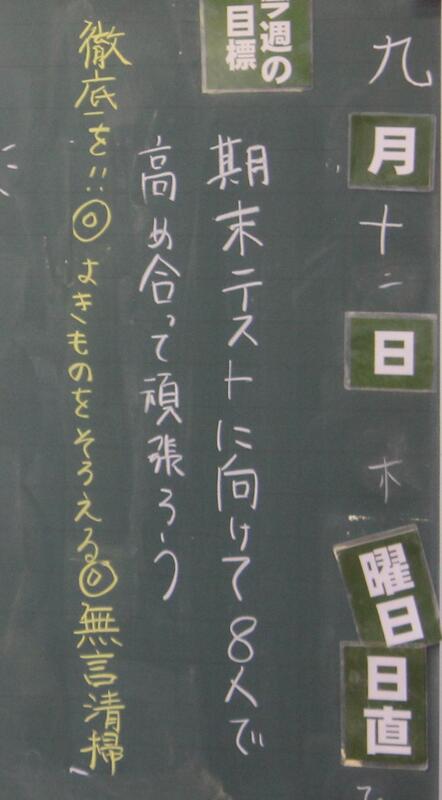 九月十二日木曜日日直
今週の目標
期末テストに向けて8人で
高め合って頑張ろう
徹底を!!◎よきものをそろえる◎無言清掃